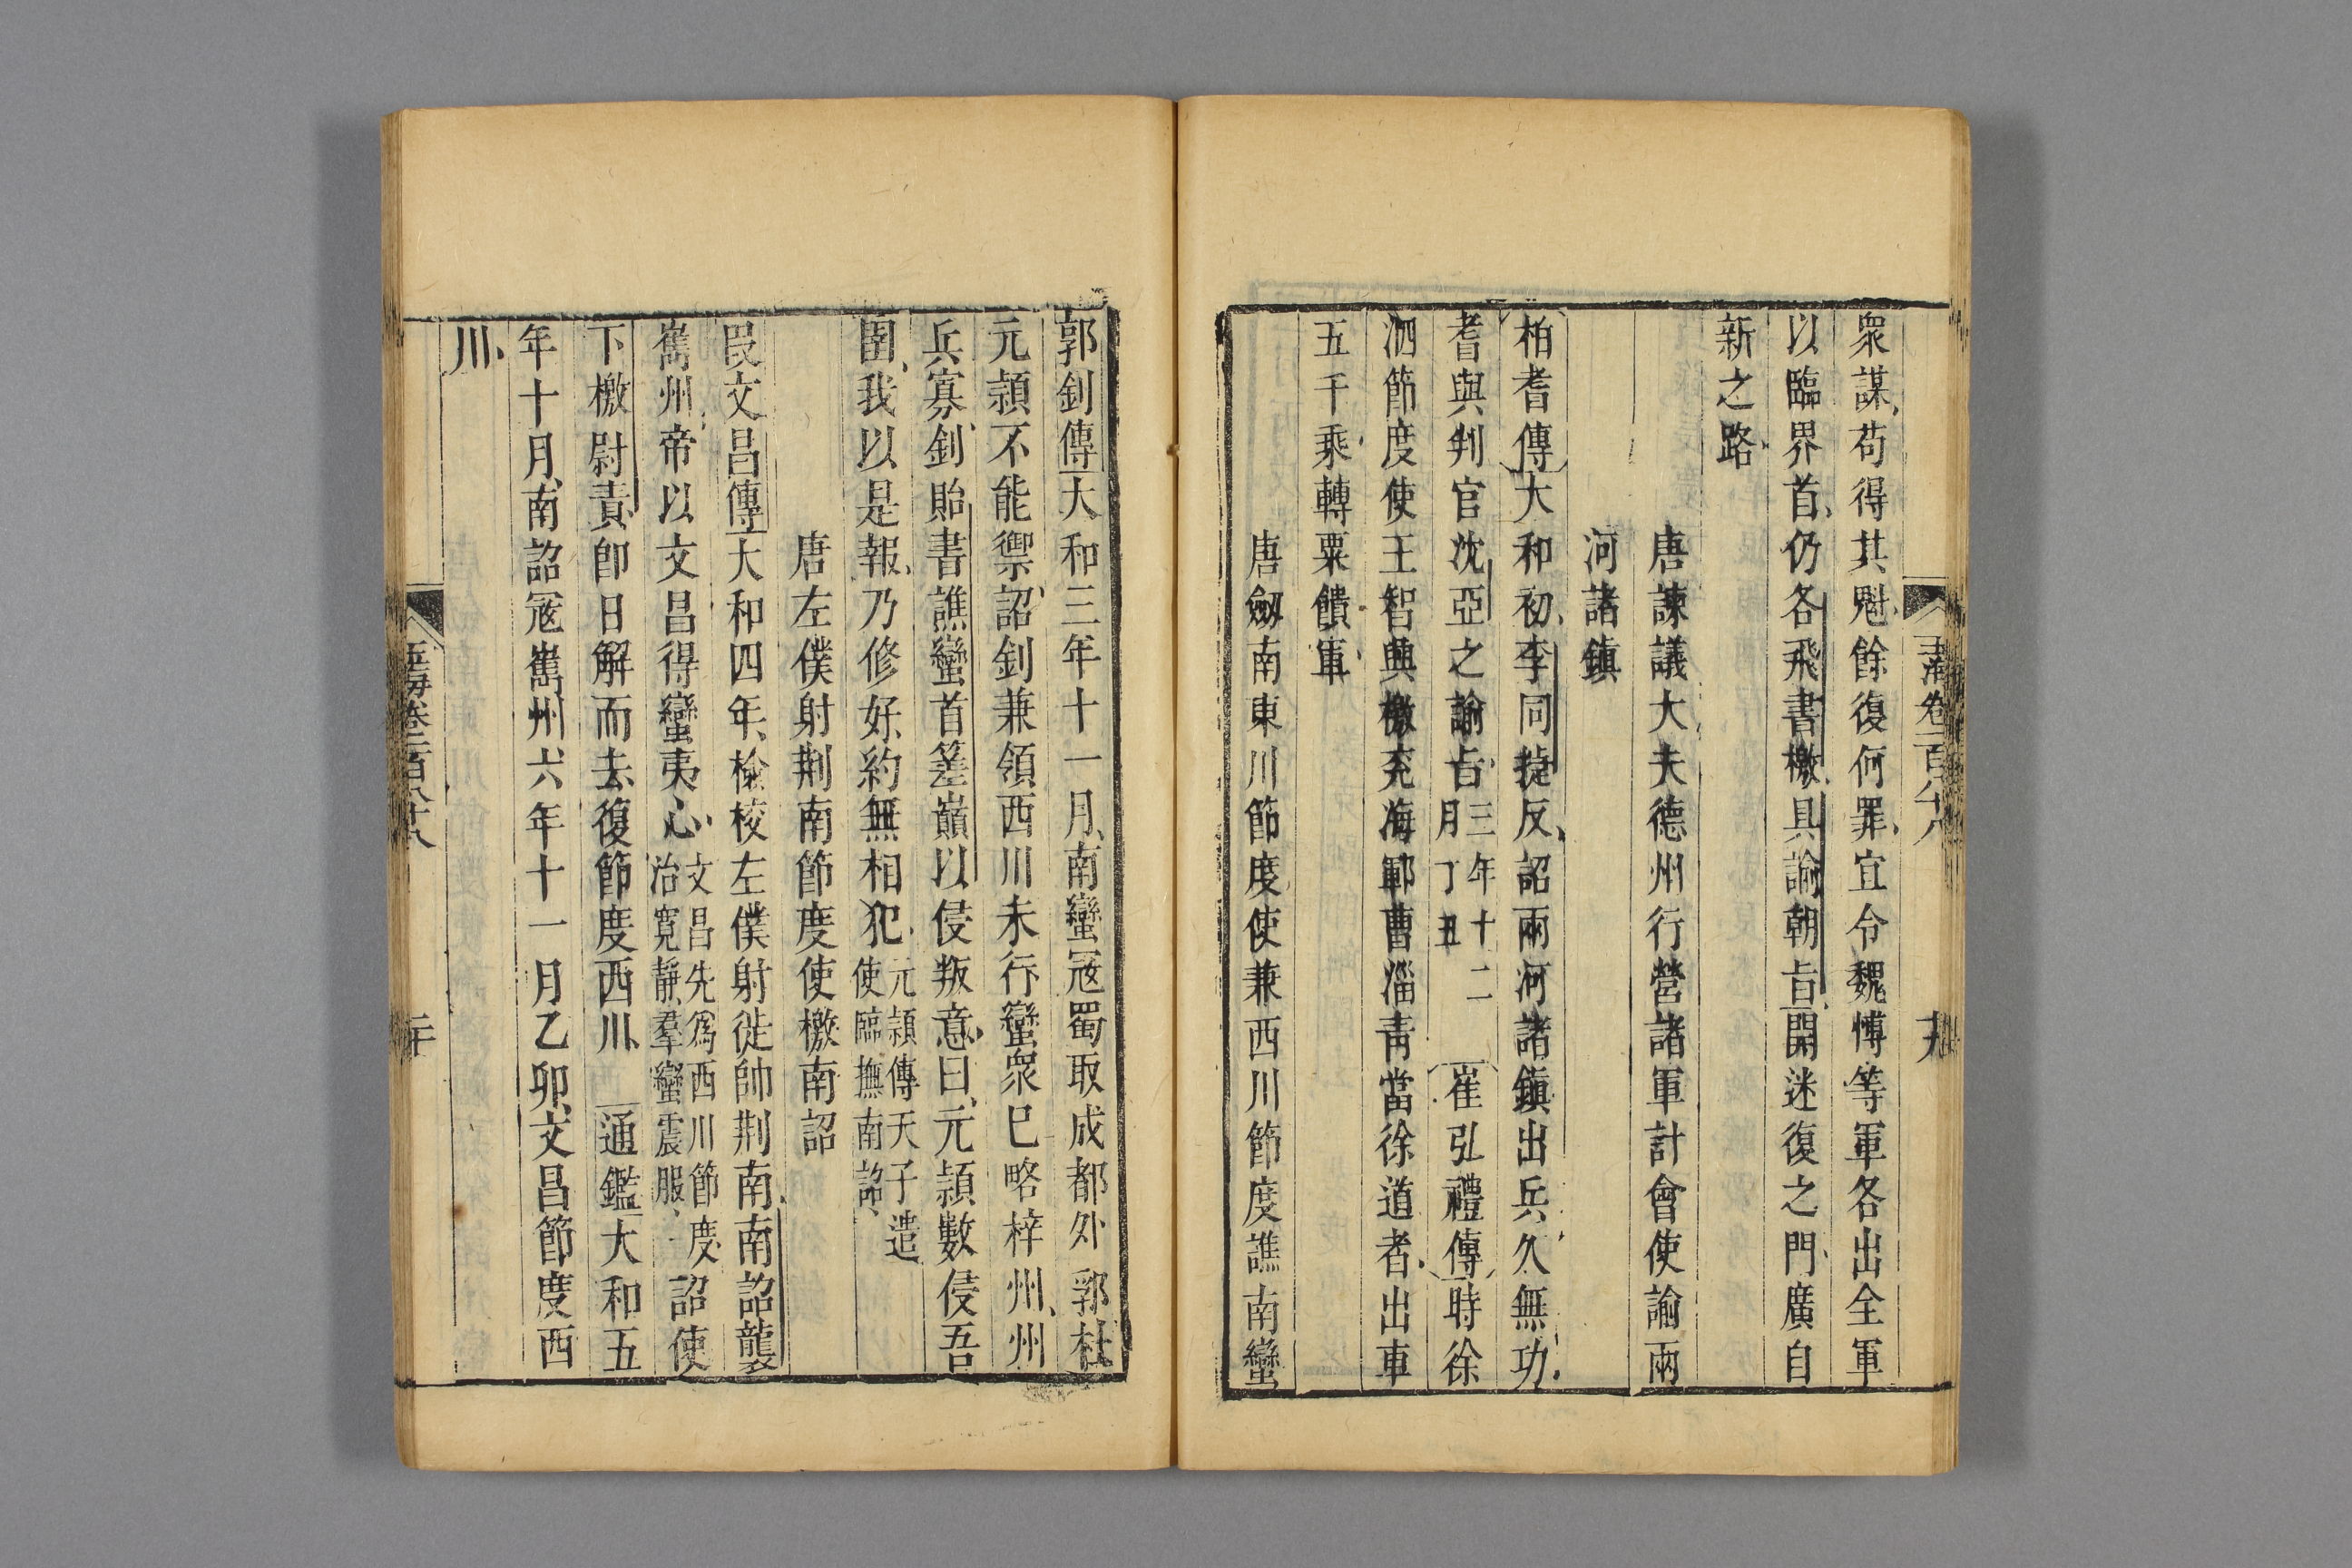 玉海卷一百八十八
十九
衆謀苟得其魁餘復何罪宜令魏博等軍各出全軍
以臨界首仍各飛書檄具諭朝旨開迷復之門廣自
新之路
唐諫議大夫德州行營諸軍計會使諭兩
河諸鎮
柏耆傳大和初李同捷反詔兩河諸鎮出兵久無功
耆與判官沈亞之諭旨三年十二月丁丑崔弘禮傳時徐
泗節度使王智興檄兗海鄆曹淄青當徐道者出車
五千乘轉粟饋軍
唐劔南東川節度使兼西川節度譙南蠻
郭釗傳大和三年十一月南蠻冦蜀取成都外郛杜
元頴不能禦詔釗兼領西川未行蠻衆已略梓州州
兵寡釗貽書譙蠻首篸巔以侵叛意曰元頴數侵吾
圉我以是報乃修好約無相犯元頴傳天子遣使臨撫南詔
唐左僕射荆南節度使檄南詔
段文昌傳大和四年檢校左僕射徙帥荆南南詔襲
巂州帝以文昌得蠻夷心文昌先爲西川節度治寬靜羣蠻震服詔使
下檄尉責卽日解而去復節度西川通鑑大和五
年十月南詔冦巂州六年十一月乙卯文昌節度西
川
玉海卷一百八十八
二十